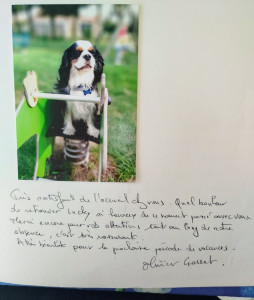 Très satisfait de l'accueil chez vous. Quel bonheur
de retrouver Lucky si heureux de ce moment passé avec vous
Merci encore pour vos attentions tout au long de notre
absence, c'est très rassurant.
A bientôt pour la prochaine période de vacances.
Olivier